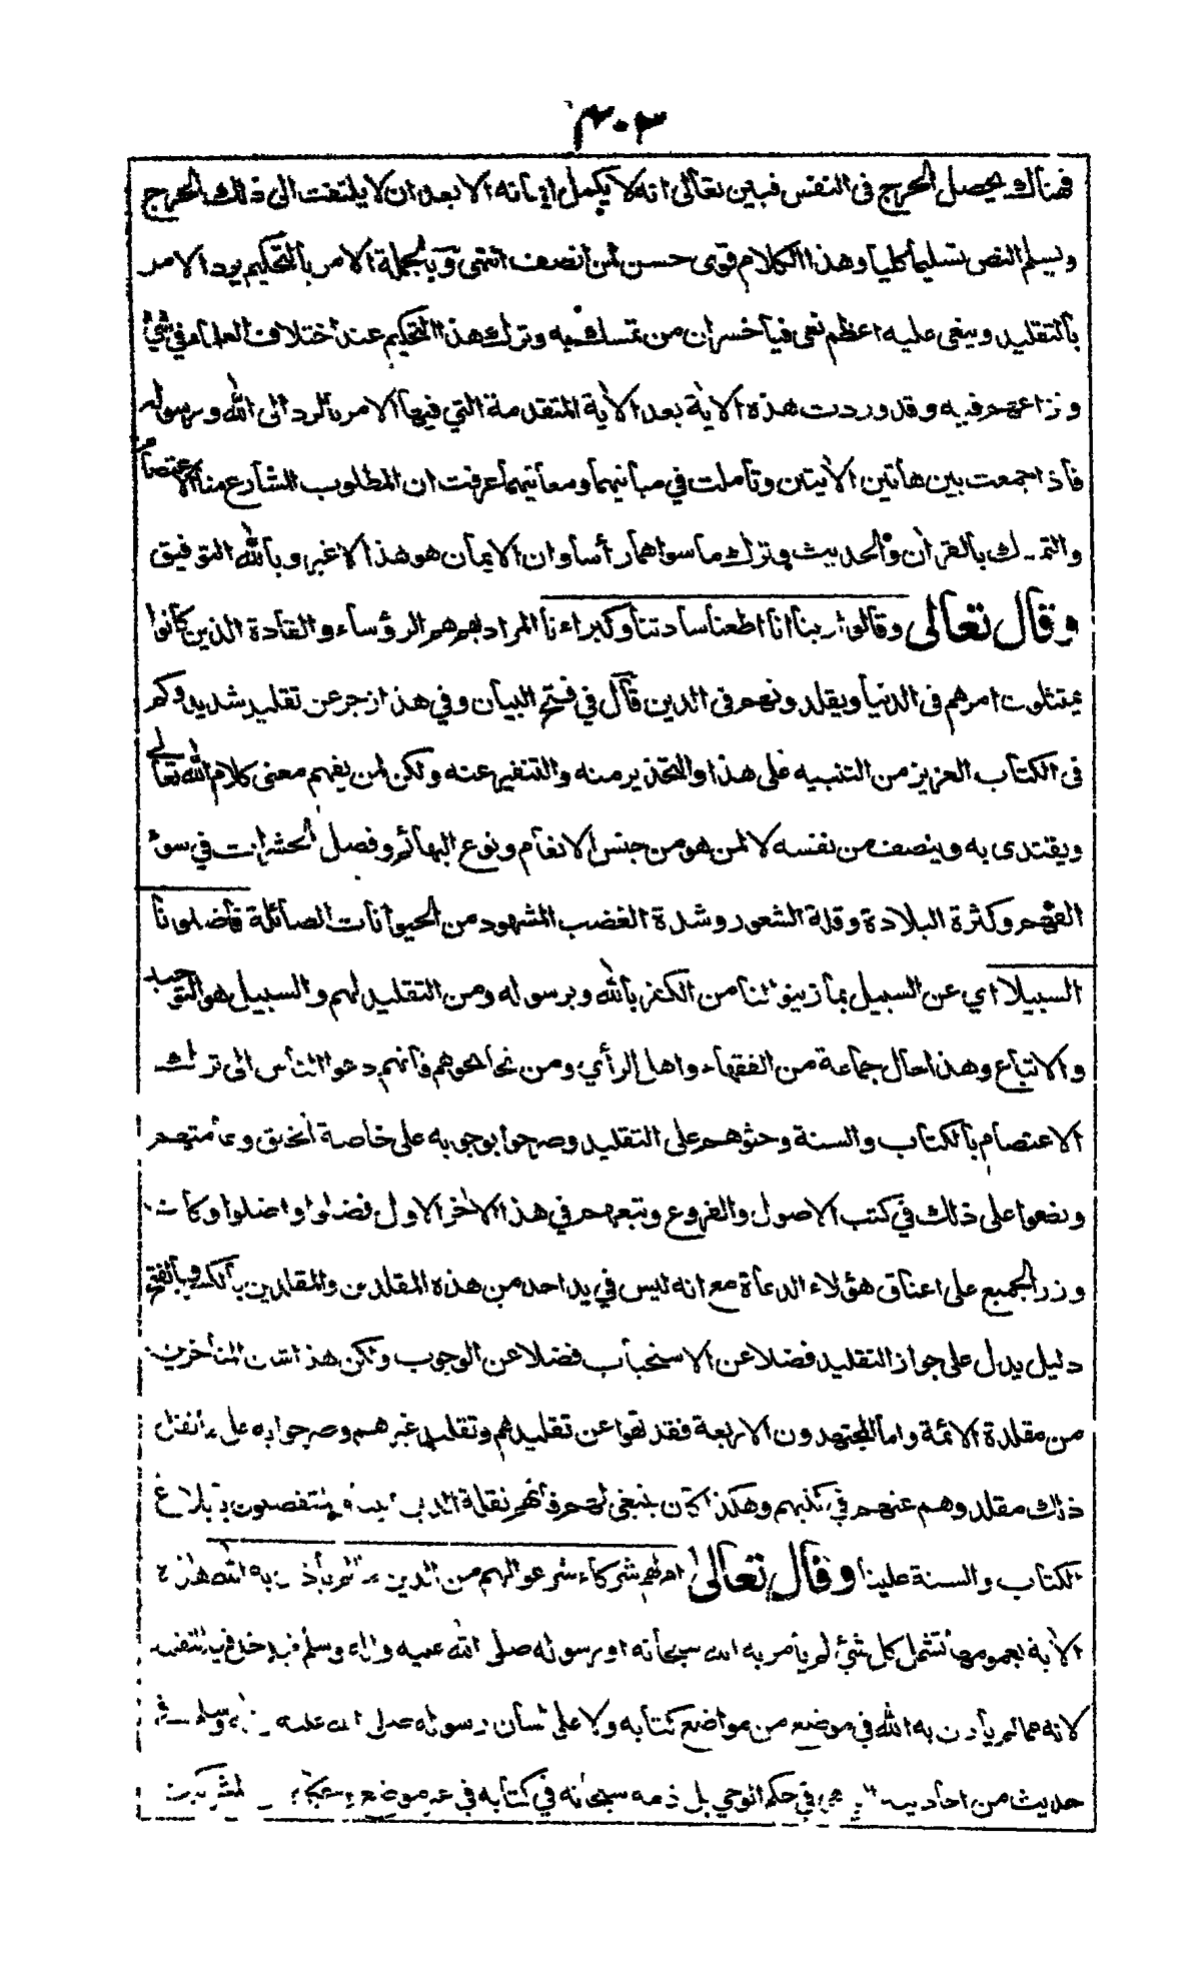 ٣٠٣
فهناك يحصل الحرج فى النفس فبين تعالى انه لا يكمل ايمانه الا بعد ان لا يلتفت الى ذلك الحرج
ويسلم النص تسليما كليا وهذا الكلام قوى حسن لمن انصف انتهى وبالجملة الامر بالتحكيم يرد الامر
بالتقليد وينعى عليه اعظم نعى فيا خسران من تمسك به وترك هذا التحكيم عند اختلاف العلماء في شئ
ونزاعهم فيه وقد وردت هذه الاية بعد الاية المتقدمة التي فيها الامر بالرد الى الله ورسوله
فاذا جمعت بين هاتين الايتين وتاملت في مبانيهما ومعانيهما عرفت ان المطلوب للشارع منا الاعتصام
والتمسك بالقران والحديث وترك ما سواهما رأسا وان الايمان هو هذا لا غير وبالله التوفيق
وقال تعالى وقالوا ربنا انا اطعنا سادتنا وكبراءنا المراد بهم هم الرؤساء والقادة الذين كانوا
يمتثلون امرهم فى الدنيا ويقلدونهم فى الدين قال في فتح البيان وفي هذا زجر عن تقليد شديد وكم
فى الكتاب العزيز من التنبيه على هذا والتحذير منه والتنفير عنه ولكن لمن يفهم معنى كلام الله تعالى
ويقتدى به وينصف من نفسه لا لمن هو من جنس الانعام ونوع البهائم وفصل الحشرات في سوء
الفهم وكثرة البلادة وقلة الشعور وشدة الغضب المشهود من الحيوانات الصائلة فاضلونا
السبيلا اي عن السبيل بما زينوا لنا من الكفر بالله وبرسوله ومن التقليد لهم والسبيل هو التوحيد
والاتباع وهذا حال جماعة من الفقهاء واهل الرأي ومن نحا نحوهم فانهم دعوا الناس الى ترك
الاعتصام بالكتاب والسنة وحثوهم على التقليد وصرحوا بوجوبه على خاصة الخلق وعامتهم
ونصوا على ذلك في كتب الاصول والفروع وتبعهم في هذا الاخر الاول فضلوا واضلوا وكان
وزر الجميع على اعناق هؤلاء الدعاة مع انه ليس في يد احد من هذه المقلدين والمقلدين بالكسر وبالفتح
دليل يدل على جواز التقليد فضلا عن الاستحباب فضلا عن الوجوب ولكن هذا شان المتأخرين
من مقلدة الائمة واما المجتهدون الاربعة فقد نهوا عن تقليدهم وتقليد غيرهم وصرحوا به على ما نقل
ذلك مقلدوهم عنهم في كتبهم وهكذا كان ينبغي لهم فانهم نقلة الدين الينا ومتفصلون بابلاغ
الكتاب والسنة علينا وقال تعالى ام لهم شركاء شرعوا لهم من الدين ما لم يأذن به الله هذه
الاية بعمومها تشمل كل شئ لم يأمر به الله سبحانه او رسوله صلى الله عليه واله وسلم فيدخل فيه التقليد
لانه مما لم يأذن به الله في موضع من مواضع كتابه ولا على لسان رسوله صلى الله عليه واله وسلم في
حديث من احاديثه التي هي في حكم الوحي بل ذمه سبحانه في كتابه في غير موضع المشركين